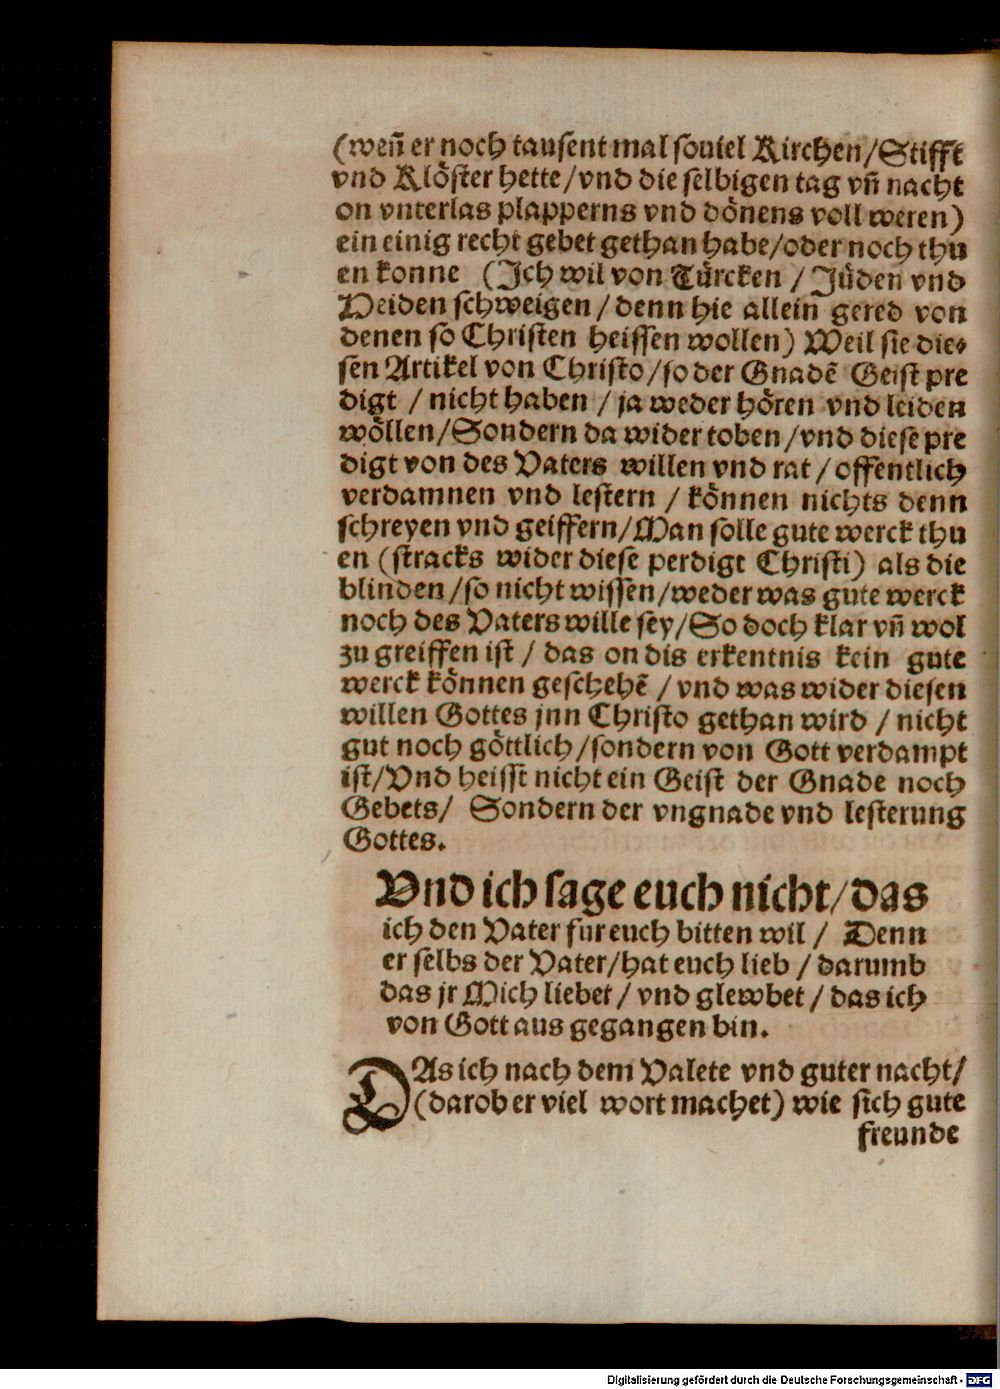 (weñ er noch tausent mal souiel Kirchen/Stifft
vnd Klöster hette/vnd die selbigen tag vñ nacht
on vnterlas plapperns vnd dönens voll weren)
ein einig recht gebet gethan habe/oder noch thu
en konne (Jch wil von Türcken / Jüden vnd
Heiden schweigen / denn hie allein gered von
denen so Christen heissen wollen) Weil sie die⸗
sen Artikel von Christo/so der Gnadẽ Geist pre
digt / nicht haben / ja weder hören vnd leiden
wöllen/Sondern da wider toben /vnd diese pre
digt von des Vaters willen vnd rat / offentlich
verdamnen vnd lestern / können nichts denn
schreyen vnd geiffern/Man solle gute werck thu
en (stracks wider diese perdigt Christi) als die
blinden /so nicht wissen/weder was gute werck
noch des Vaters wille sey/So doch klar vñ wol
zu greiffen ist / das on dis erkentnis kein gute
werck können geschehẽ / vnd was wider diesen
willen Gottes jnn Christo gethan wird / nicht
gut noch göttlich /sondern von Gott verdampt
ist/Vnd heisst nicht ein Geist der Gnade noch
Gebets/ Sondern der vngnade vnd lesterung
Gottes.
Vnd ich sage euch nicht/das
ich den Vater fur euch bitten wil / Denn
er selbs der Vater/hat euch lieb / darumb
das jr Mich liebet / vnd glewbet / das ich
von Gott aus gegangen bin.
DAs ich nach dem Valete vnd guter nacht/
(darob er viel wort machet) wie sich gute
freunde
Digitalisierung gefördert durch die Deutsche Forschungsgemeinschaft - DFG